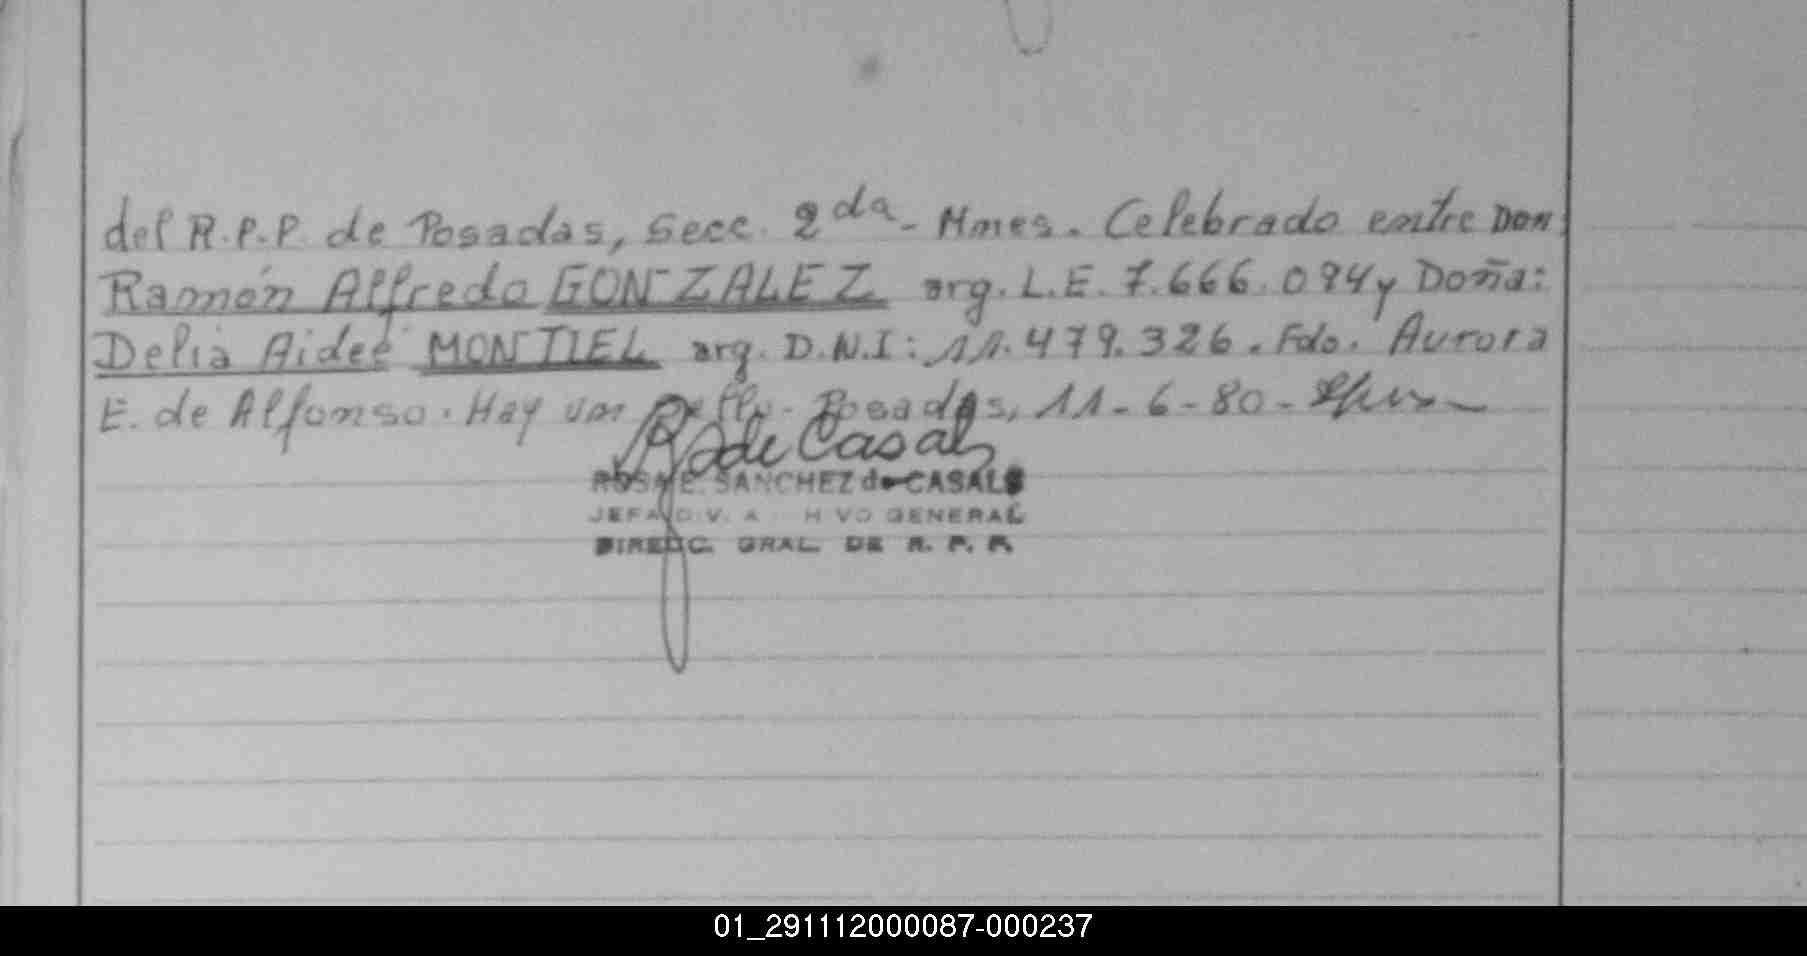 del R.P.P. de Posadas, Secc. 2da- Mnes. Celebrado entre Don:
Ramón Alfredo GONZALEZ arg. L.E. 7.666.094 y Doña:
Delia Aideé MONTIEL arg. D.N.I: 11.479.326. Fdo. Aurora
E. de Alfonso. Hay un sello- Posadas, 11-6-80-
R de Casals
ROSA E. SANCHEZ de CASALS
JEFA DIV. A HIVO GENERAL
DIREC. GRAL. DE R. P. P.
01_291112000087-000237